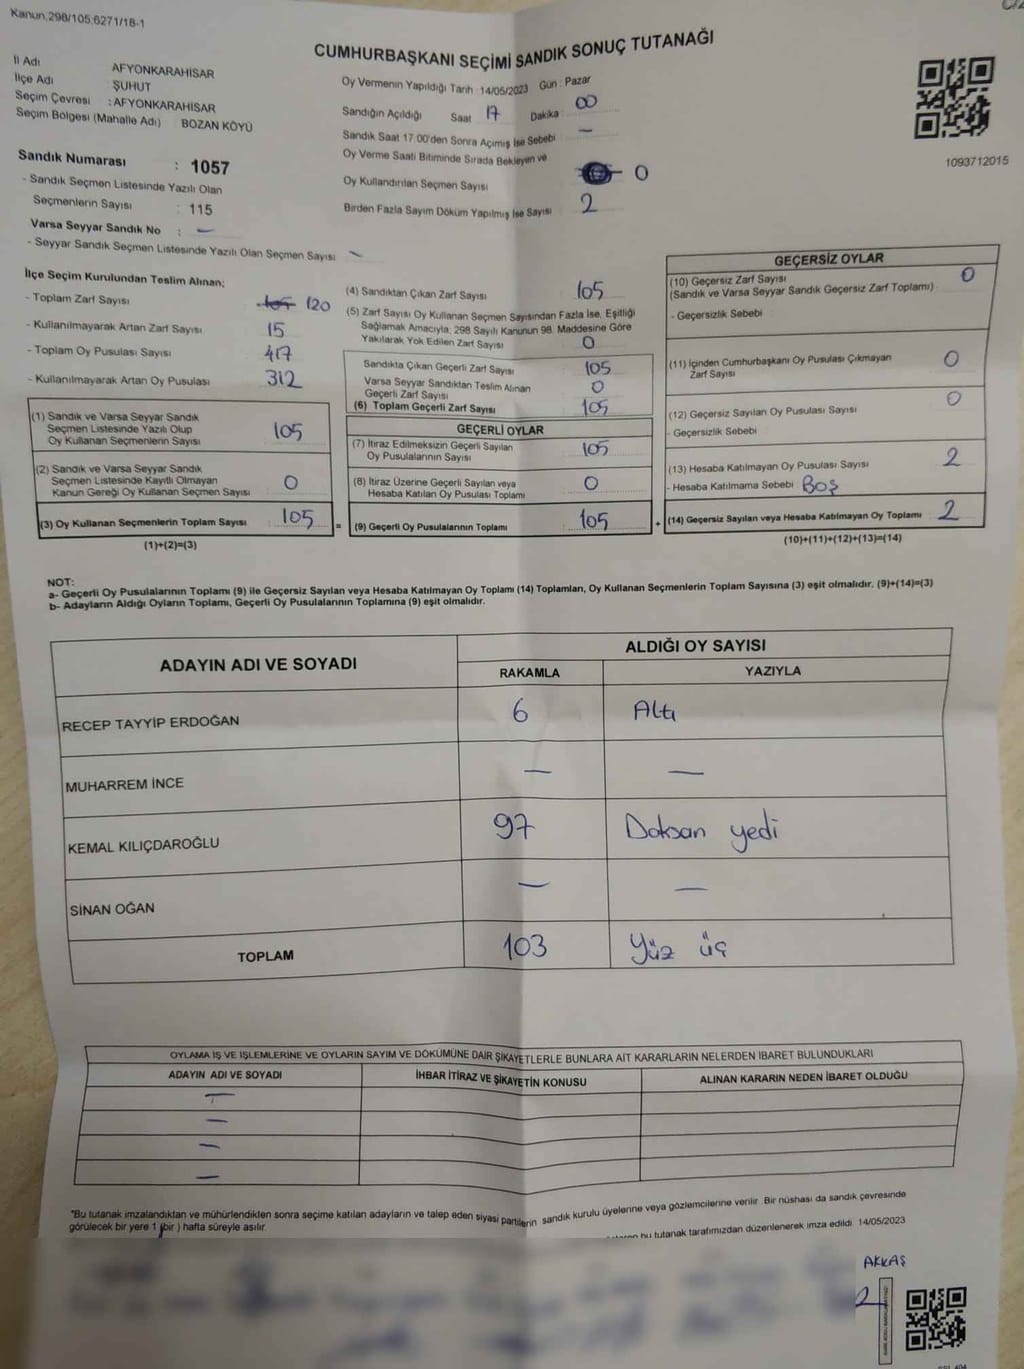 Kanun:298/105;6271/18-1
CUMHURBAŞKANI SEÇİMİ SANDIK SONUÇ TUTANAĞI
İl Adı AFYONKARAHİSAR
İlçe Adı ŞUHUT
Seçim Çevresi : AFYONKARAHİSAR
Seçim Bölgesi (Mahalle Adı) BOZAN KÖYÜ
Sandık Numarası : 1057
- Sandık Seçmen Listesinde Yazılı Olan
Seçmenlerin Sayısı : 115
Varsa Seyyar Sandık No : –
- Seyyar Sandık Seçmen Listesinde Yazılı Olan Seçmen Sayısı –
Oy Vermenin Yapıldığı Tarih : 14/05/2023 Gün : Pazar
Sandığın Açıldığı Saat 17 Dakika : 00
Sandık Saat 17:00'den Sonra Açımış İse Sebebi –
Oy Verme Saati Bitiminde Sırada Bekleyen ve
Oy Kullandırılan Seçmen Sayısı 0
Birden Fazla Sayım Döküm Yapılmış İse Sayısı 2
1093712015
İlçe Seçim Kurulundan Teslim Alınan;
- Toplam Zarf Sayısı 105 120
- Kullanılmayarak Artan Zarf Sayısı 15
- Toplam Oy Pusulası Sayısı 417
- Kullanılmayarak Artan Oy Pusulası 312
(1) Sandık ve Varsa Seyyar Sandık
Seçmen Listesinde Yazılı Olup
Oy Kullanan Seçmenlerin Sayısı 105
(2) Sandık ve Varsa Seyyar Sandık
Seçmen Listesinde Kayıtlı Olmayan
Kanun Gereği Oy Kullanan Seçmen Sayısı 0
(3) Oy Kullanan Seçmenlerin Toplam Sayısı 105 =
(1)+(2)=(3)
(4) Sandıktan Çıkan Zarf Sayısı 105
(5) Zarf Sayısı Oy Kullanan Seçmen Sayısından Fazla İse, Eşitliği
Sağlamak Amacıyla; 298 Sayılı Kanunun 98. Maddesine Göre
Yakılarak Yok Edilen Zarf Sayısı 0
Sandıkta Çıkan Geçerli Zarf Sayısı 105
Varsa Seyyar Sandıktan Teslim Alınan
Geçerli Zarf Sayısı 0
(6) Toplam Geçerli Zarf Sayısı 105
GEÇERLİ OYLAR
(7) İtiraz Edilmeksizin Geçerli Sayılan
Oy Pusulalarının Sayısı 105
(8) İtiraz Üzerine Geçerli Sayılan veya
Hesaba Katılan Oy Pusulası Toplamı 0
(9) Geçerli Oy Pusulalarının Toplamı 105 +
GEÇERSİZ OYLAR
(10) Geçersiz Zarf Sayısı 0
(Sandık ve Varsa Seyyar Sandık Geçersiz Zarf Toplamı) :
- Geçersizlik Sebebi
(11) İçinden Cumhurbaşkanı Oy Pusulası Çıkmayan
Zarf Sayısı 0
(12) Geçersiz Sayılan Oy Pusulası Sayısı 0
- Geçersizlik Sebebi
(13) Hesaba Katılmayan Oy Pusulası Sayısı 2
- Hesaba Katılmama Sebebi Boş
(14) Geçersiz Sayılan veya Hesaba Katılmayan Oy Toplamı 2
(10)+(11)+(12)+(13)=(14)
NOT:
a- Geçerli Oy Pusulalarının Toplamı (9) ile Geçersiz Sayılan veya Hesaba Katılmayan Oy Toplamı (14) Toplamları, Oy Kullanan Seçmenlerin Toplam Sayısına (3) eşit olmalıdır. (9)+(14)=(3)
b- Adayların Aldığı Oyların Toplamı, Geçerli Oy Pusulalarının Toplamına (9) eşit olmalıdır.
ADAYIN ADI VE SOYADI ALDIĞI OY SAYISI
RAKAMLA YAZIYLA
RECEP TAYYİP ERDOĞAN 6 Altı
MUHARREM İNCE – –
KEMAL KILIÇDAROĞLU 97 Doksan yedi
SİNAN OĞAN – –
TOPLAM 103 Yüz üç
OYLAMA İŞ VE İŞLEMLERİNE VE OYLARIN SAYIM VE DÖKÜMÜNE DAİR ŞİKAYETLERLE BUNLARA AİT KARARLARIN NELERDEN İBARET BULUNDUKLARI
ADAYIN ADI VE SOYADI İHBAR İTİRAZ VE ŞİKAYETİN KONUSU ALINAN KARARIN NEDEN İBARET OLDUĞU
–
–
–
–
*Bu tutanak imzalandıktan ve mühürlendikten sonra seçime katılan adayların ve talep eden siyasi partilerin sandık kurulu üyelerine veya gözlemcilerine verilir. Bir nüshası da sandık çevresinde
görülecek bir yere 1 (bir) hafta süreyle asılır.
bu tutanak tarafımızdan düzenlenerek imza edildi. 14/05/2023
AKKAŞ
2